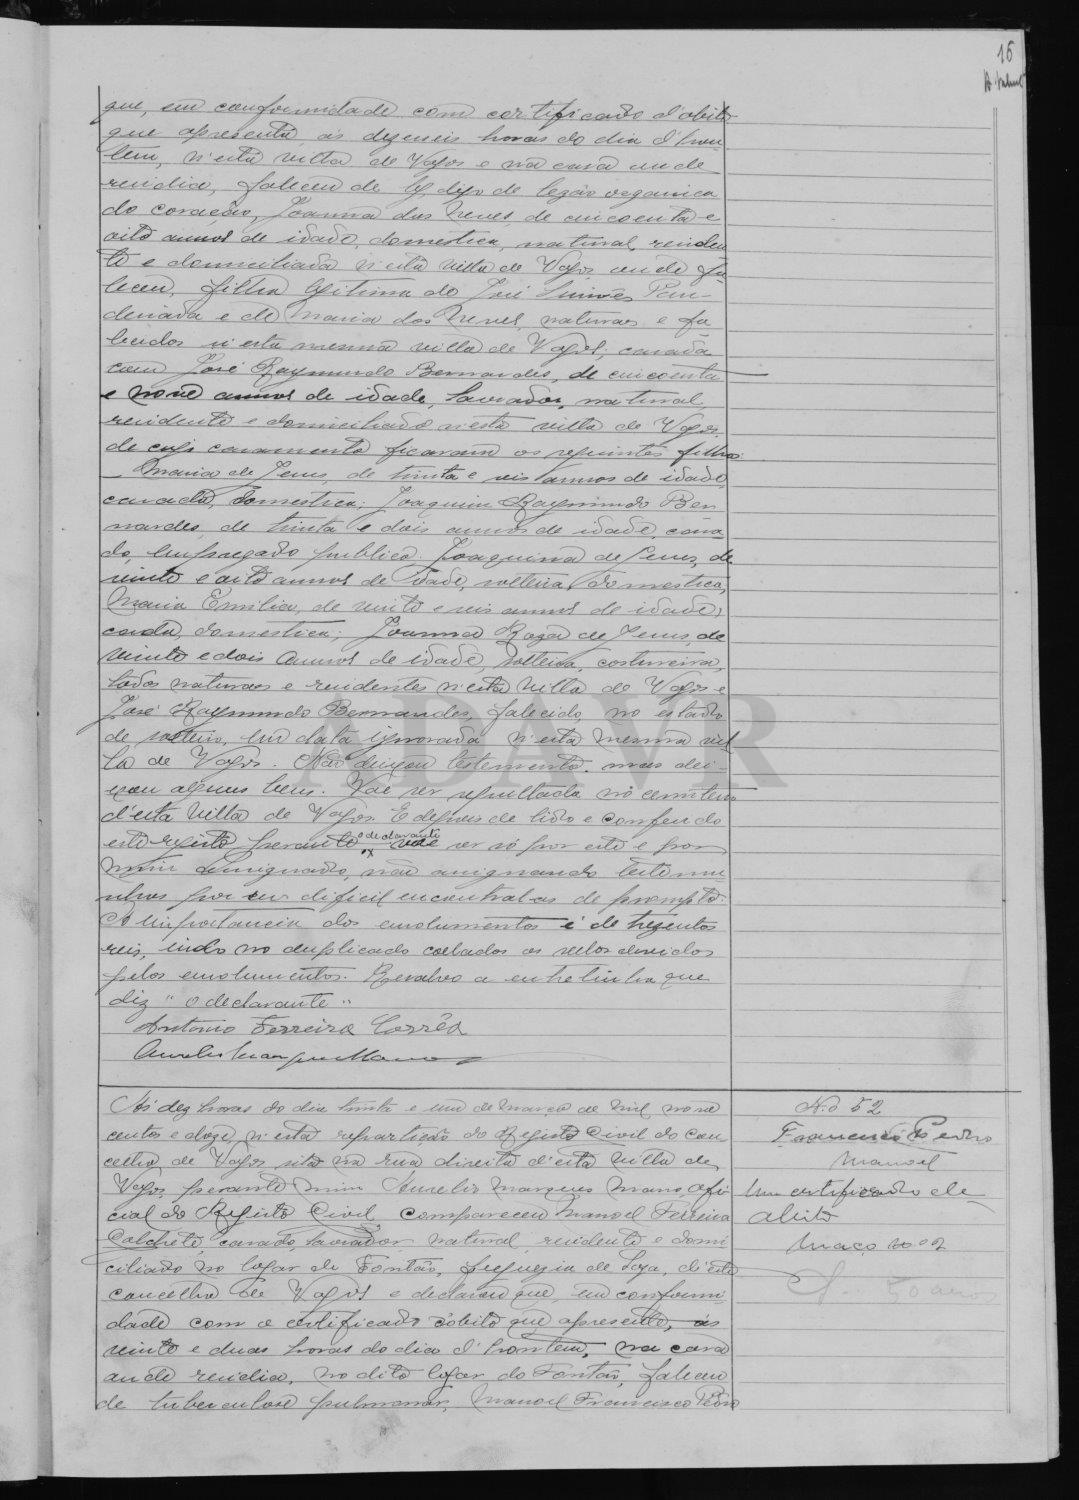 16
que, em conformidade com certificado d'obito
que apresenta, ás dezeseis horas do dia d'hon-
tem, n'esta villa de Vagos e na casa onde
residia, faleceu de lezão organica
do coração, Joanna das Neves, de cincoenta e
oito annos de idade, domestica, natural, residen
te e domiciliada n'esta villa de Vagos, onde fa-
leceu, filha legitima de José Simões
e de Maria das Neves, naturaes e fa
lecidos n'esta mesma villa de Vagos; casada
com José Raymundo Bernardes, de cincoenta
e nove annos de idade, lavrador, natural,
residente e domiciliado n'esta villa de Vagos,
de cujo casamento ficaram os seguintes filhos:
Maria de Jesus, de trinta e seis annos de idade,
casada, domestica; Joaquim Raymundo Ber
nardes, de trinta e dois annos de idade, casa
do, empregado publico; Joaquina de Jesus, de
vinte e oito annos de idade, solteira, domestica;
Maria Emilia, de vinte e seis annos de idade,
casada, domestica; Joanna Roza de Jesus, de
vinte e dois annos de idade, solteira, costureira,
todos naturaes e residentes n'esta villa de Vagos e
José Raymundo Bernardes, falecido, no estado
de solteiro, em data ignorada n'esta mesma vil
la de Vagos. Não deixou testamento, mas dei-
xou alguns bens. Vae ser sepultada no cemiterio
d'esta villa de Vagos. E depois de lido e conferido
este registo perante o declarante vae ser só por este e por
mim assignado, não assignando testemu
nhas por ser dificil encontral-as de prompto.
A importancia dos emolumentos é de trezentos
reis, indo no duplicado collados os sellos devidos
pelos emolumentos. Resalvo a entrelinha que
diz "o declarante"
Antonio Ferreira Corrêa
Aurelio Marques Mano
Ás dez horas do dia trinta e um de Março de mil nove
centos e doze, n'esta repartição do Registo Civil do con
celho de Vagos sita na rua direita d'esta villa de
Vagos, perante mim Aurelio Marques Mano, ofi
cial do Registo Civil, compareceu Manoel Ferreira
Calchete, casado, lavrador, natural, residente e domi
ciliado no logar de Fontão, freguezia de Soza, d'este
concelho de Vagos e declarou que, em conformi
dade com o certificado d'obito que apresenta, ás
vinte e duas horas do dia d'hontem, na casa
onde residia, no dito logar do Fontão, faleceu
de tuberculose pulmonar, Manoel Francisco Pedro
N.o 52
Francisco Pedro
Manoel
Um certificado de
obito
Maço no 2
50 anos
ADAVR